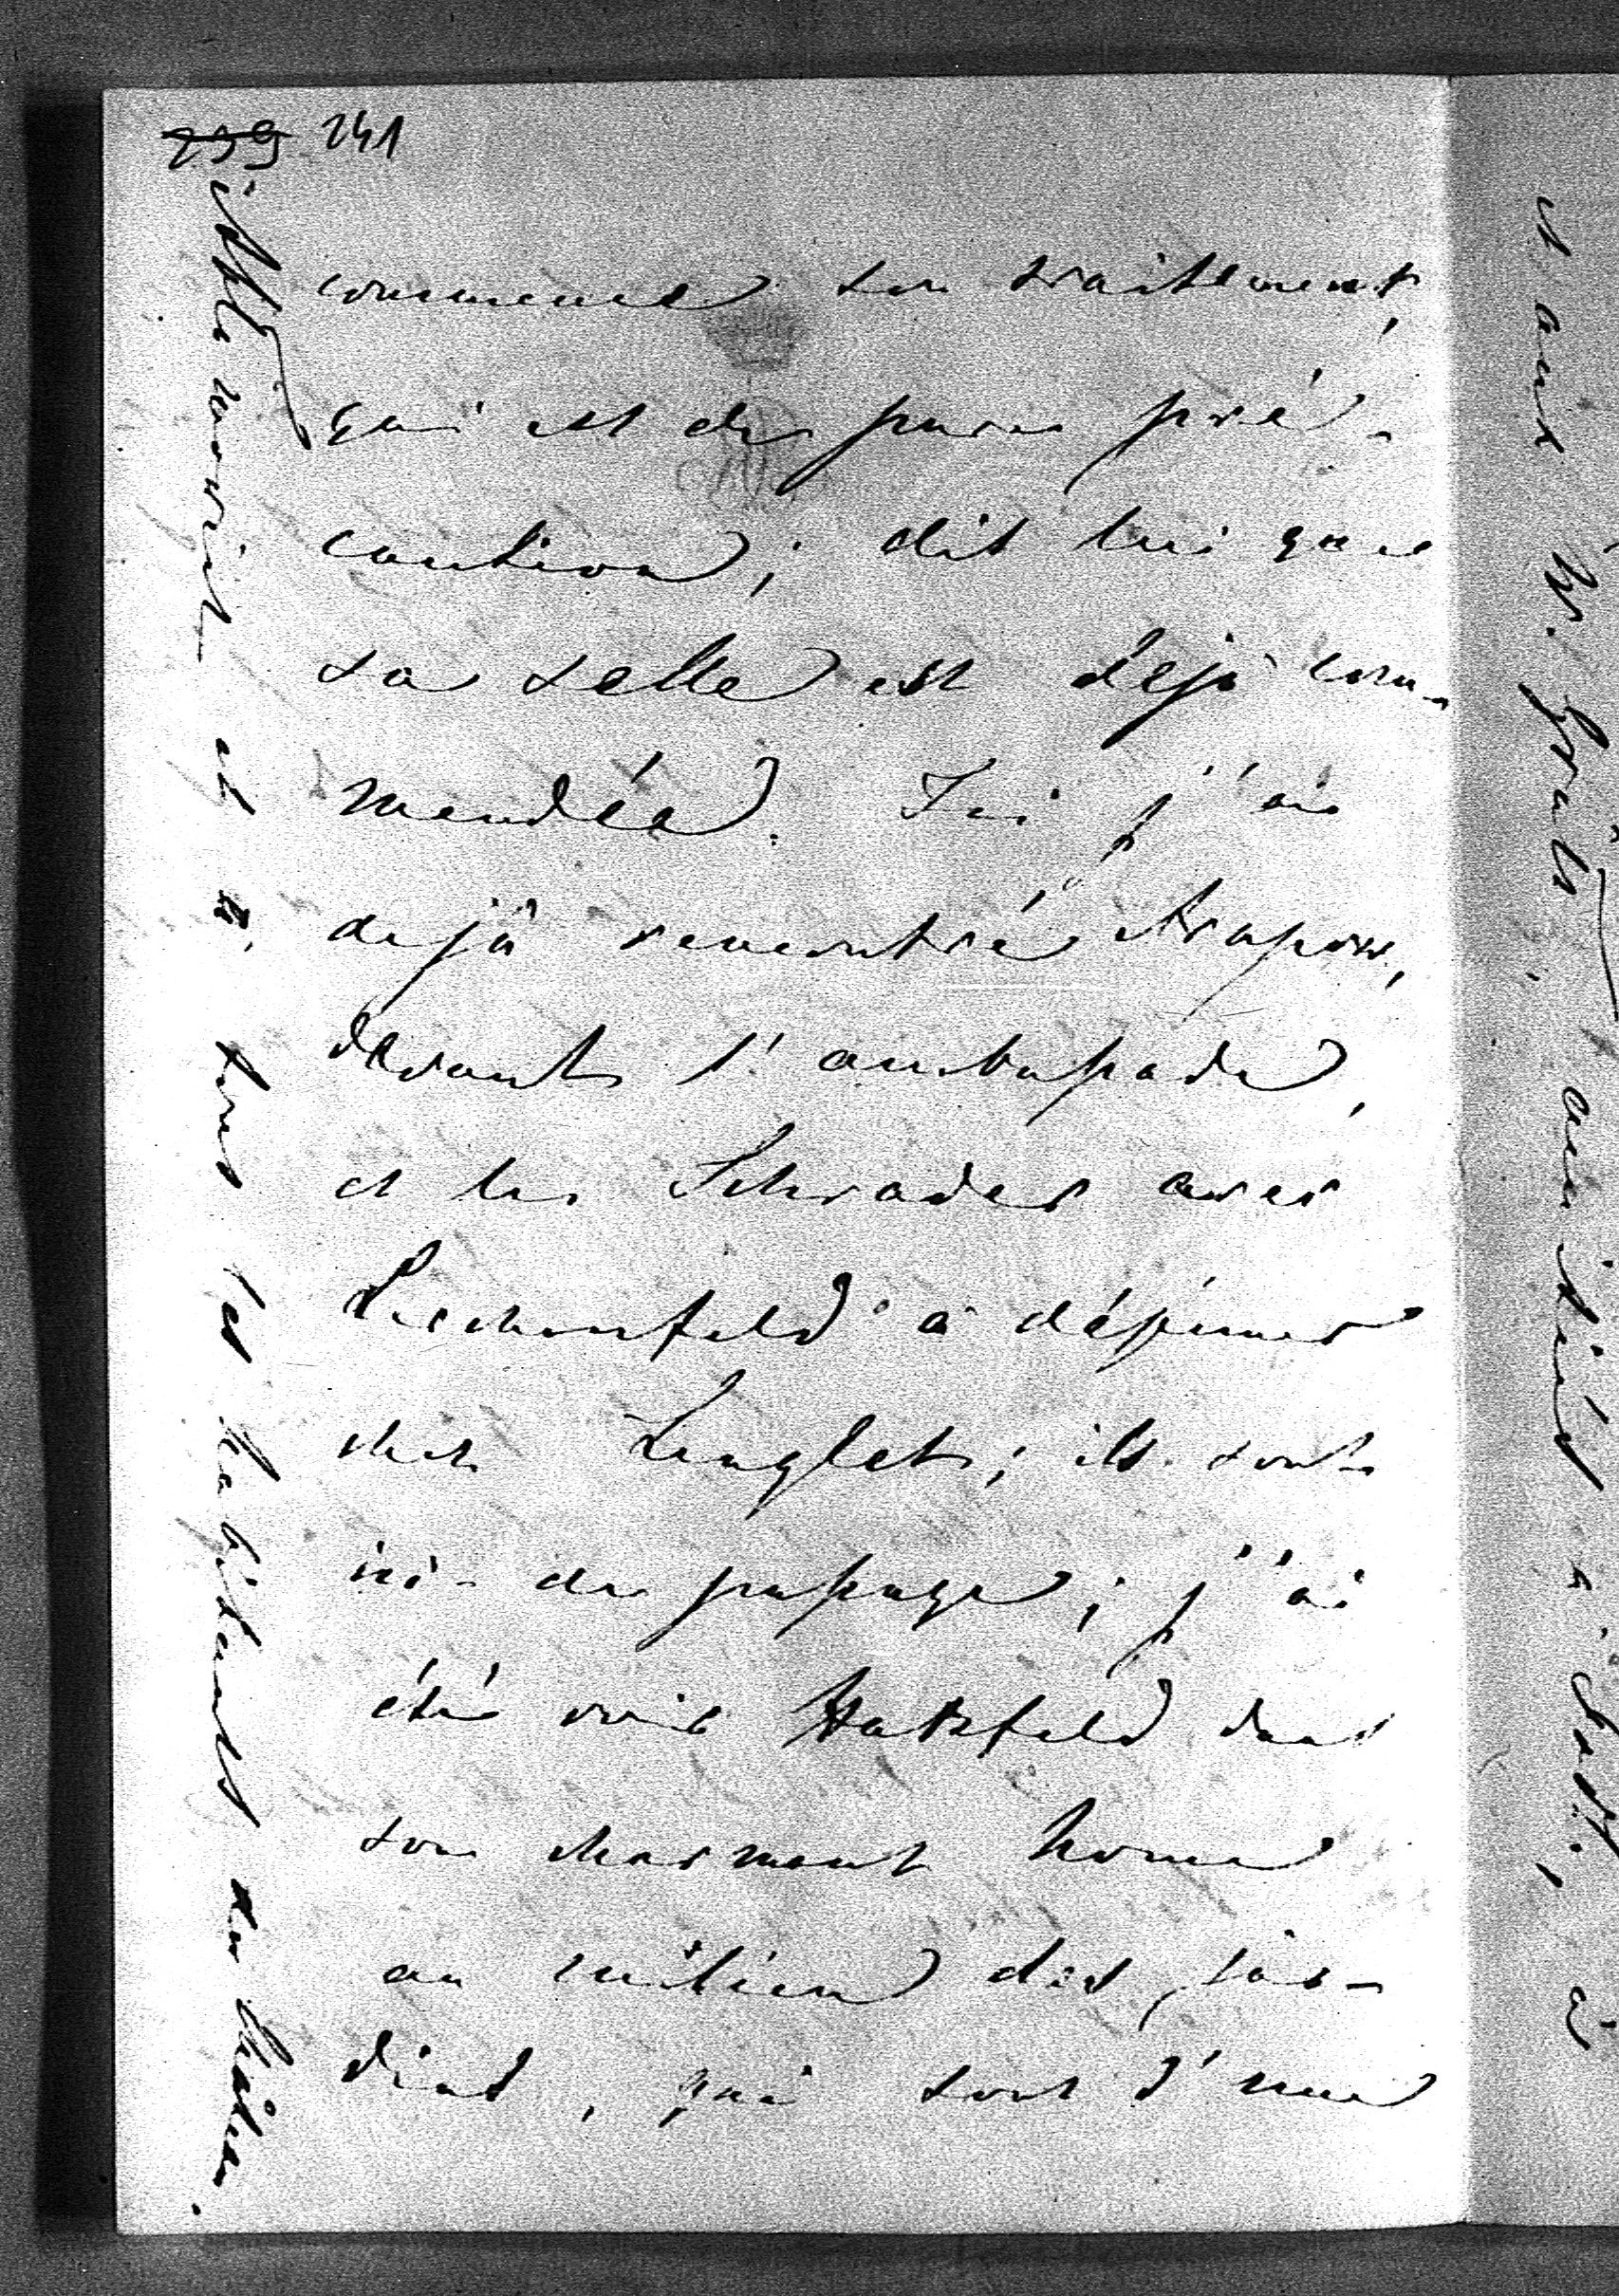 239 241
commence son traitement,
qui est de pure pré-
caution; dit lui que
sa selle est déjà com-
mendée. Ici j'ai
dejà rencontré Arapow,
devant l'ambassade,
et les Schrader avec
Lerchenfeld à déjeuner
chez Lenglet; ils sont
ici de passage; j'ai
été voir Hatzfeld dans
son charment home
au milieu des jar-
dins, qui sont d'une
et à tous les habitants du château.
et aux